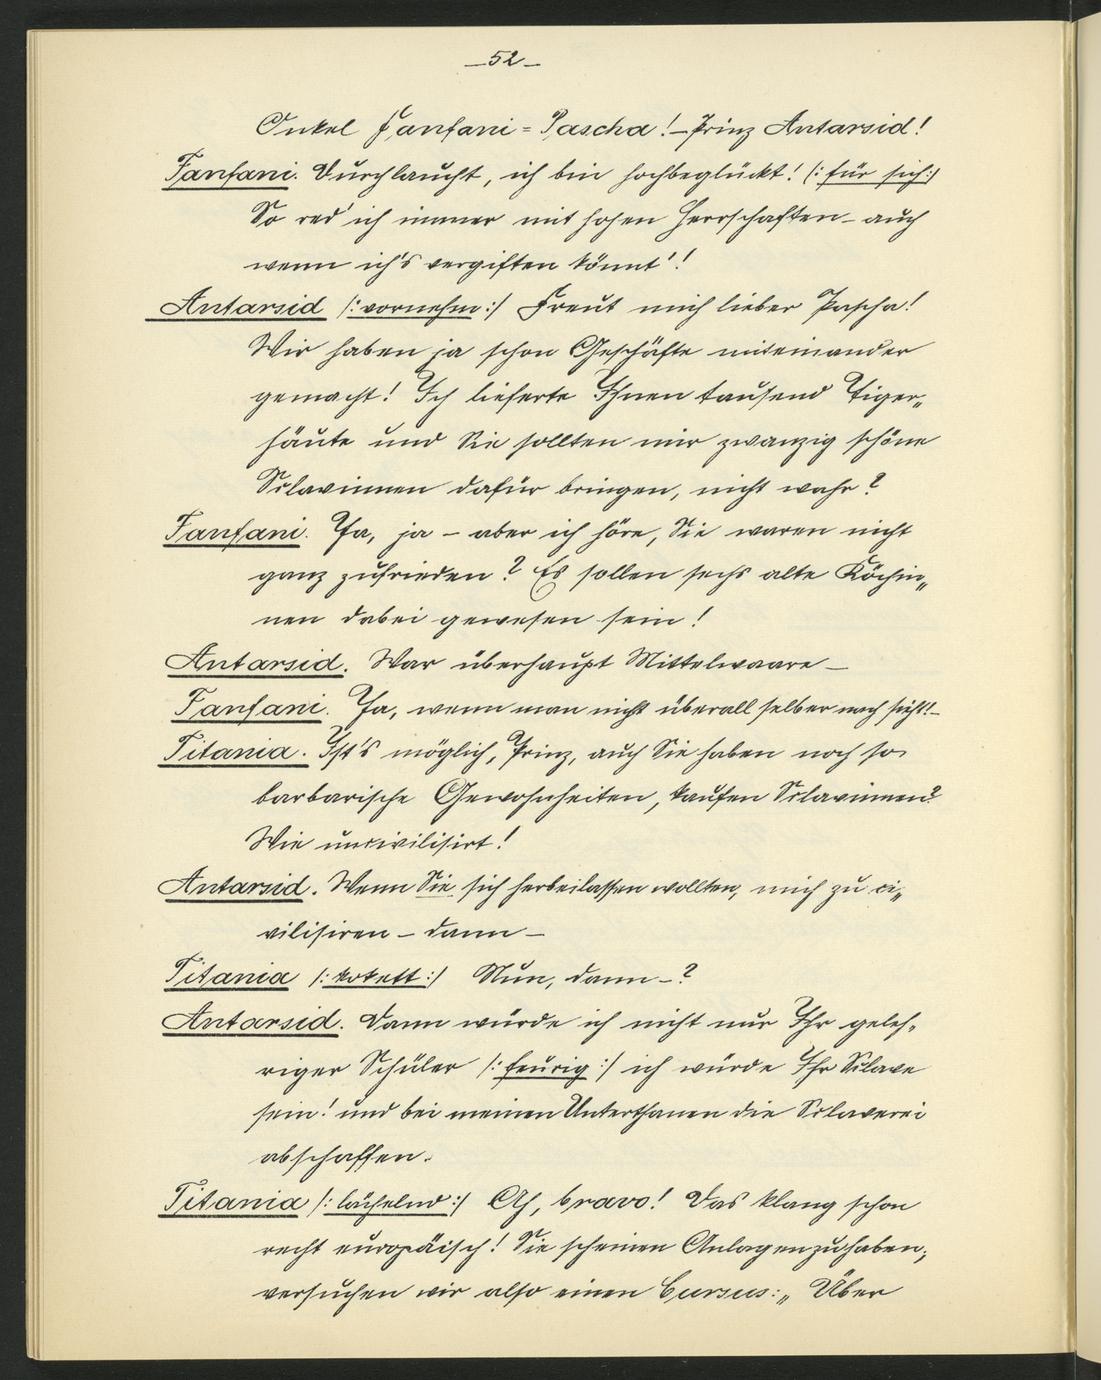 —52—
Onkel Fanfani=Pascha! – Prinz Antarsid!
Fanfani. Durchlaucht, ich bin hochbeglückt! (: für sich:)
So red' ich immer mit hohen Herrschaften – auch
wenn ich's vergiften könnt'!
Antarsid (: vornehm :) Freut mich lieber Pascha!
Wir haben ja schon Geschäfte miteinander
gemacht! Ich lieferte Ihnen tausend Tiger„
häute und Sie sollten mir zwanzig schöne
Sclavinnen dafür bringen, nicht wahr?
Fanfani. Ja, ja – aber ich höre, Sie waren nicht
ganz zufrieden? Es sollen sechs alte Köchin„
nen dabei gewesen sein!
Antarsid. War überhaupt Mittelwaare –
Fanfani. Ja, wenn man nicht überall selber nach sieht! –
Titania. Ist's möglich, Prinz, auch Sie haben noch so
barbarische Gewohnheiten, kaufen Sclavinnen?
Wie uncivilisirt!
Antarsid. Wenn Sie sich herbeilassen wollten, mich zu ci„
vilisiren – dann –
Titania (: kokett :) Nun, dann – ?
Antarsid. Dann würde ich nicht nur Ihr geleh„
riger Schüler (: feurig :) ich würde Ihr Sclave
sein! und bei meinen Unterthanen die Sclaverei
abschaffen.
Titania (: lächelnd :) Ah, bravo! Das klang schon
recht europäisch! Sie scheinen Anlagen zu haben;
versuchen wir also einen Cursus: „ Über